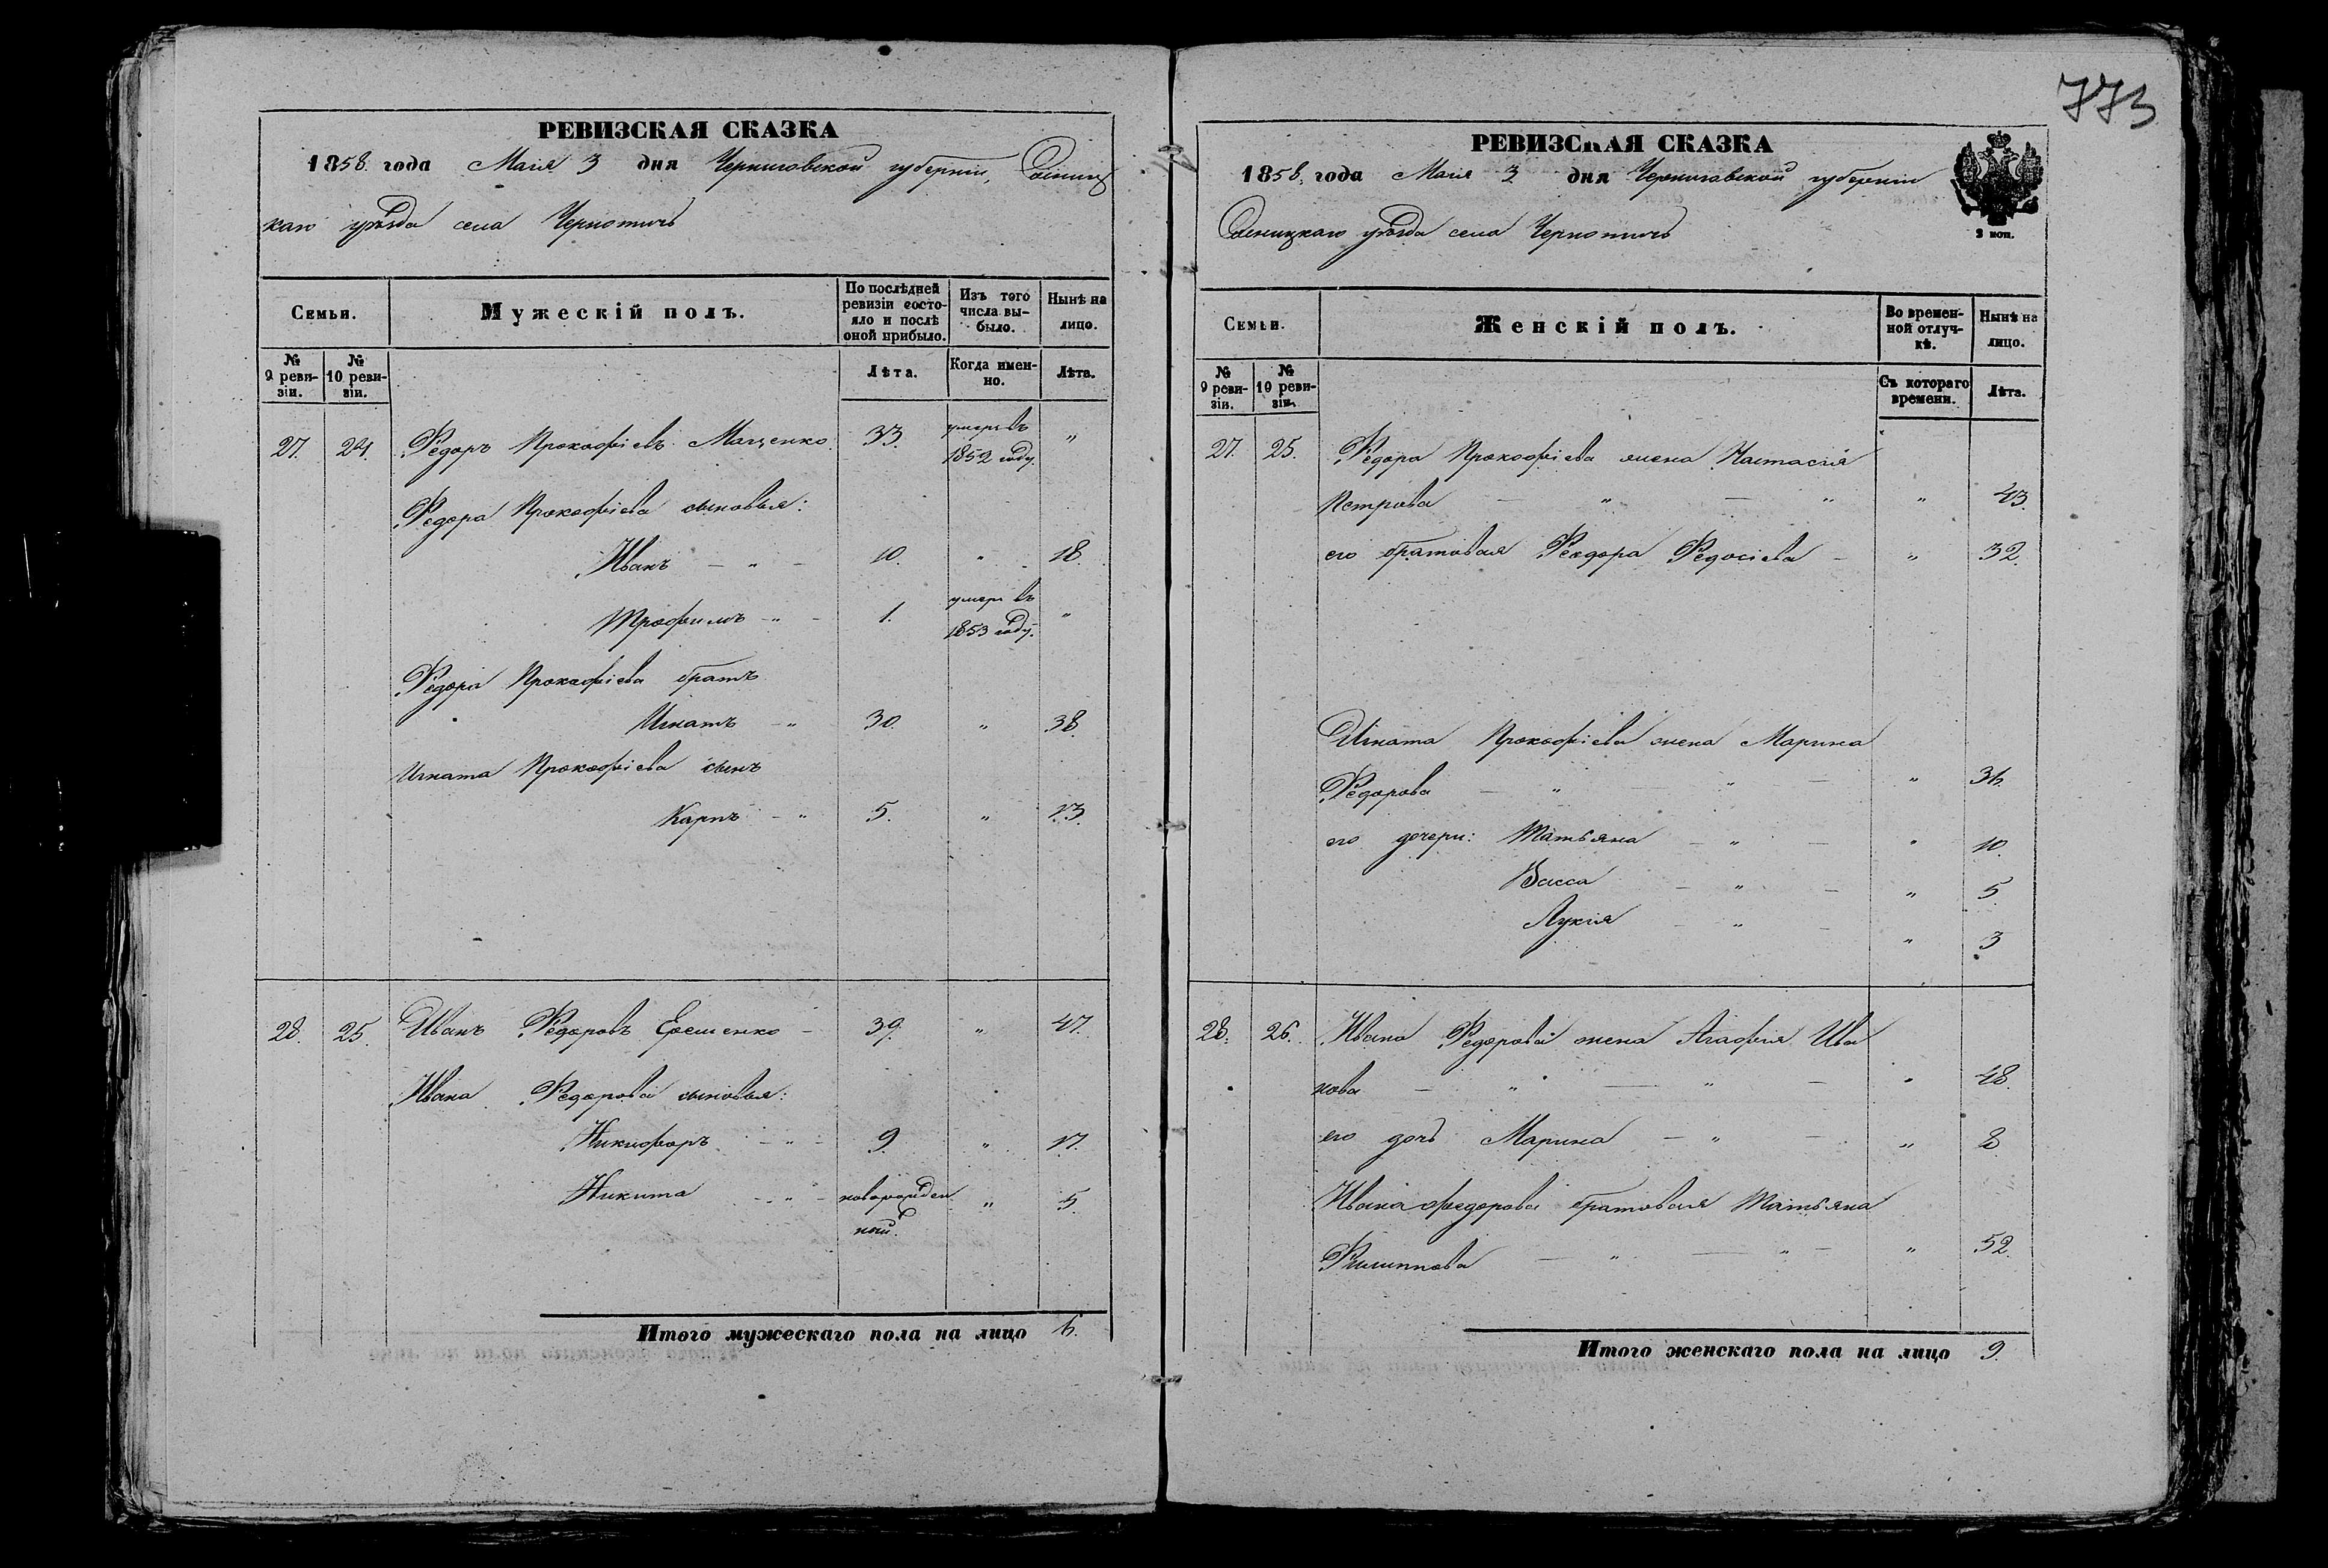 773
РЕВИЗСКАЯ СКАЗКА
1858. года Маія 3 дня Черниговской губерніи, Сосниц
каго уѣзда села Чернотичъ
Семьи.
Мужескій полъ.
По послѣдней ревизіи состо-
яло и послѣ
оной прибыло.
Изъ того
числа вы-
было.
Нынѣ на
лицо.
№
9 реви-
зіи.
№
10 реви-
зіи.
Лѣта.
Когда имен-
но.
Лѣта.
27. 24. Федоръ Прокофіевъ Мащенко 33. умеръ въ 1852 году. "
Федора Прокофіева сыновья:
Иванъ — " — 10. " 18.
Трофимъ — " — 1. умеръ въ 1853 году. "
Федора Прокофіева братъ
Игнатъ — " 30. " 38.
Игната Прокофіева сынъ
Карпъ — " 5. " 13.
28. 25. Иванъ Федоровъ 39. " 47.
Ивана Федорова сыновья:
Никифоръ — " — 9. " 17.
Никита — " — новорожден " 5.
ный.
Итого мужескаго пола на лицо 6.
РЕВИЗСКАЯ СКАЗКА
1858. года Маія 3 дня Черниговской губерніи
Сосницкаго уѣзда села Чернотичъ
Семьи.
Женскій полъ.
Во времен-
ной отлуч-
кѣ.
Нынѣ на
лицо.
№
9 реви-
зіи.
№
10 реви-
зіи.
Съ котораго
времени.
Лѣта.
27. 25. Федора Прокофіева жена Настасія
Петрова — " — " " 43.
его братовая Феодора Федосіева — " 32.
Игната Прокофіева жена Марина
Федорова — " " — " 36.
его дочери: Татьяна — " — " 10.
Васса — " — " 5
Лукія — " — " 3
28. 26. Ивана Федорова жена Агафія Ива
нова — " — " — " 48.
его дочь Марина — " — " 8
Ивана Федорова братовая Татьяна
Филиппова — " — " — " 52.
Итого женскаго пола на лицо 9.